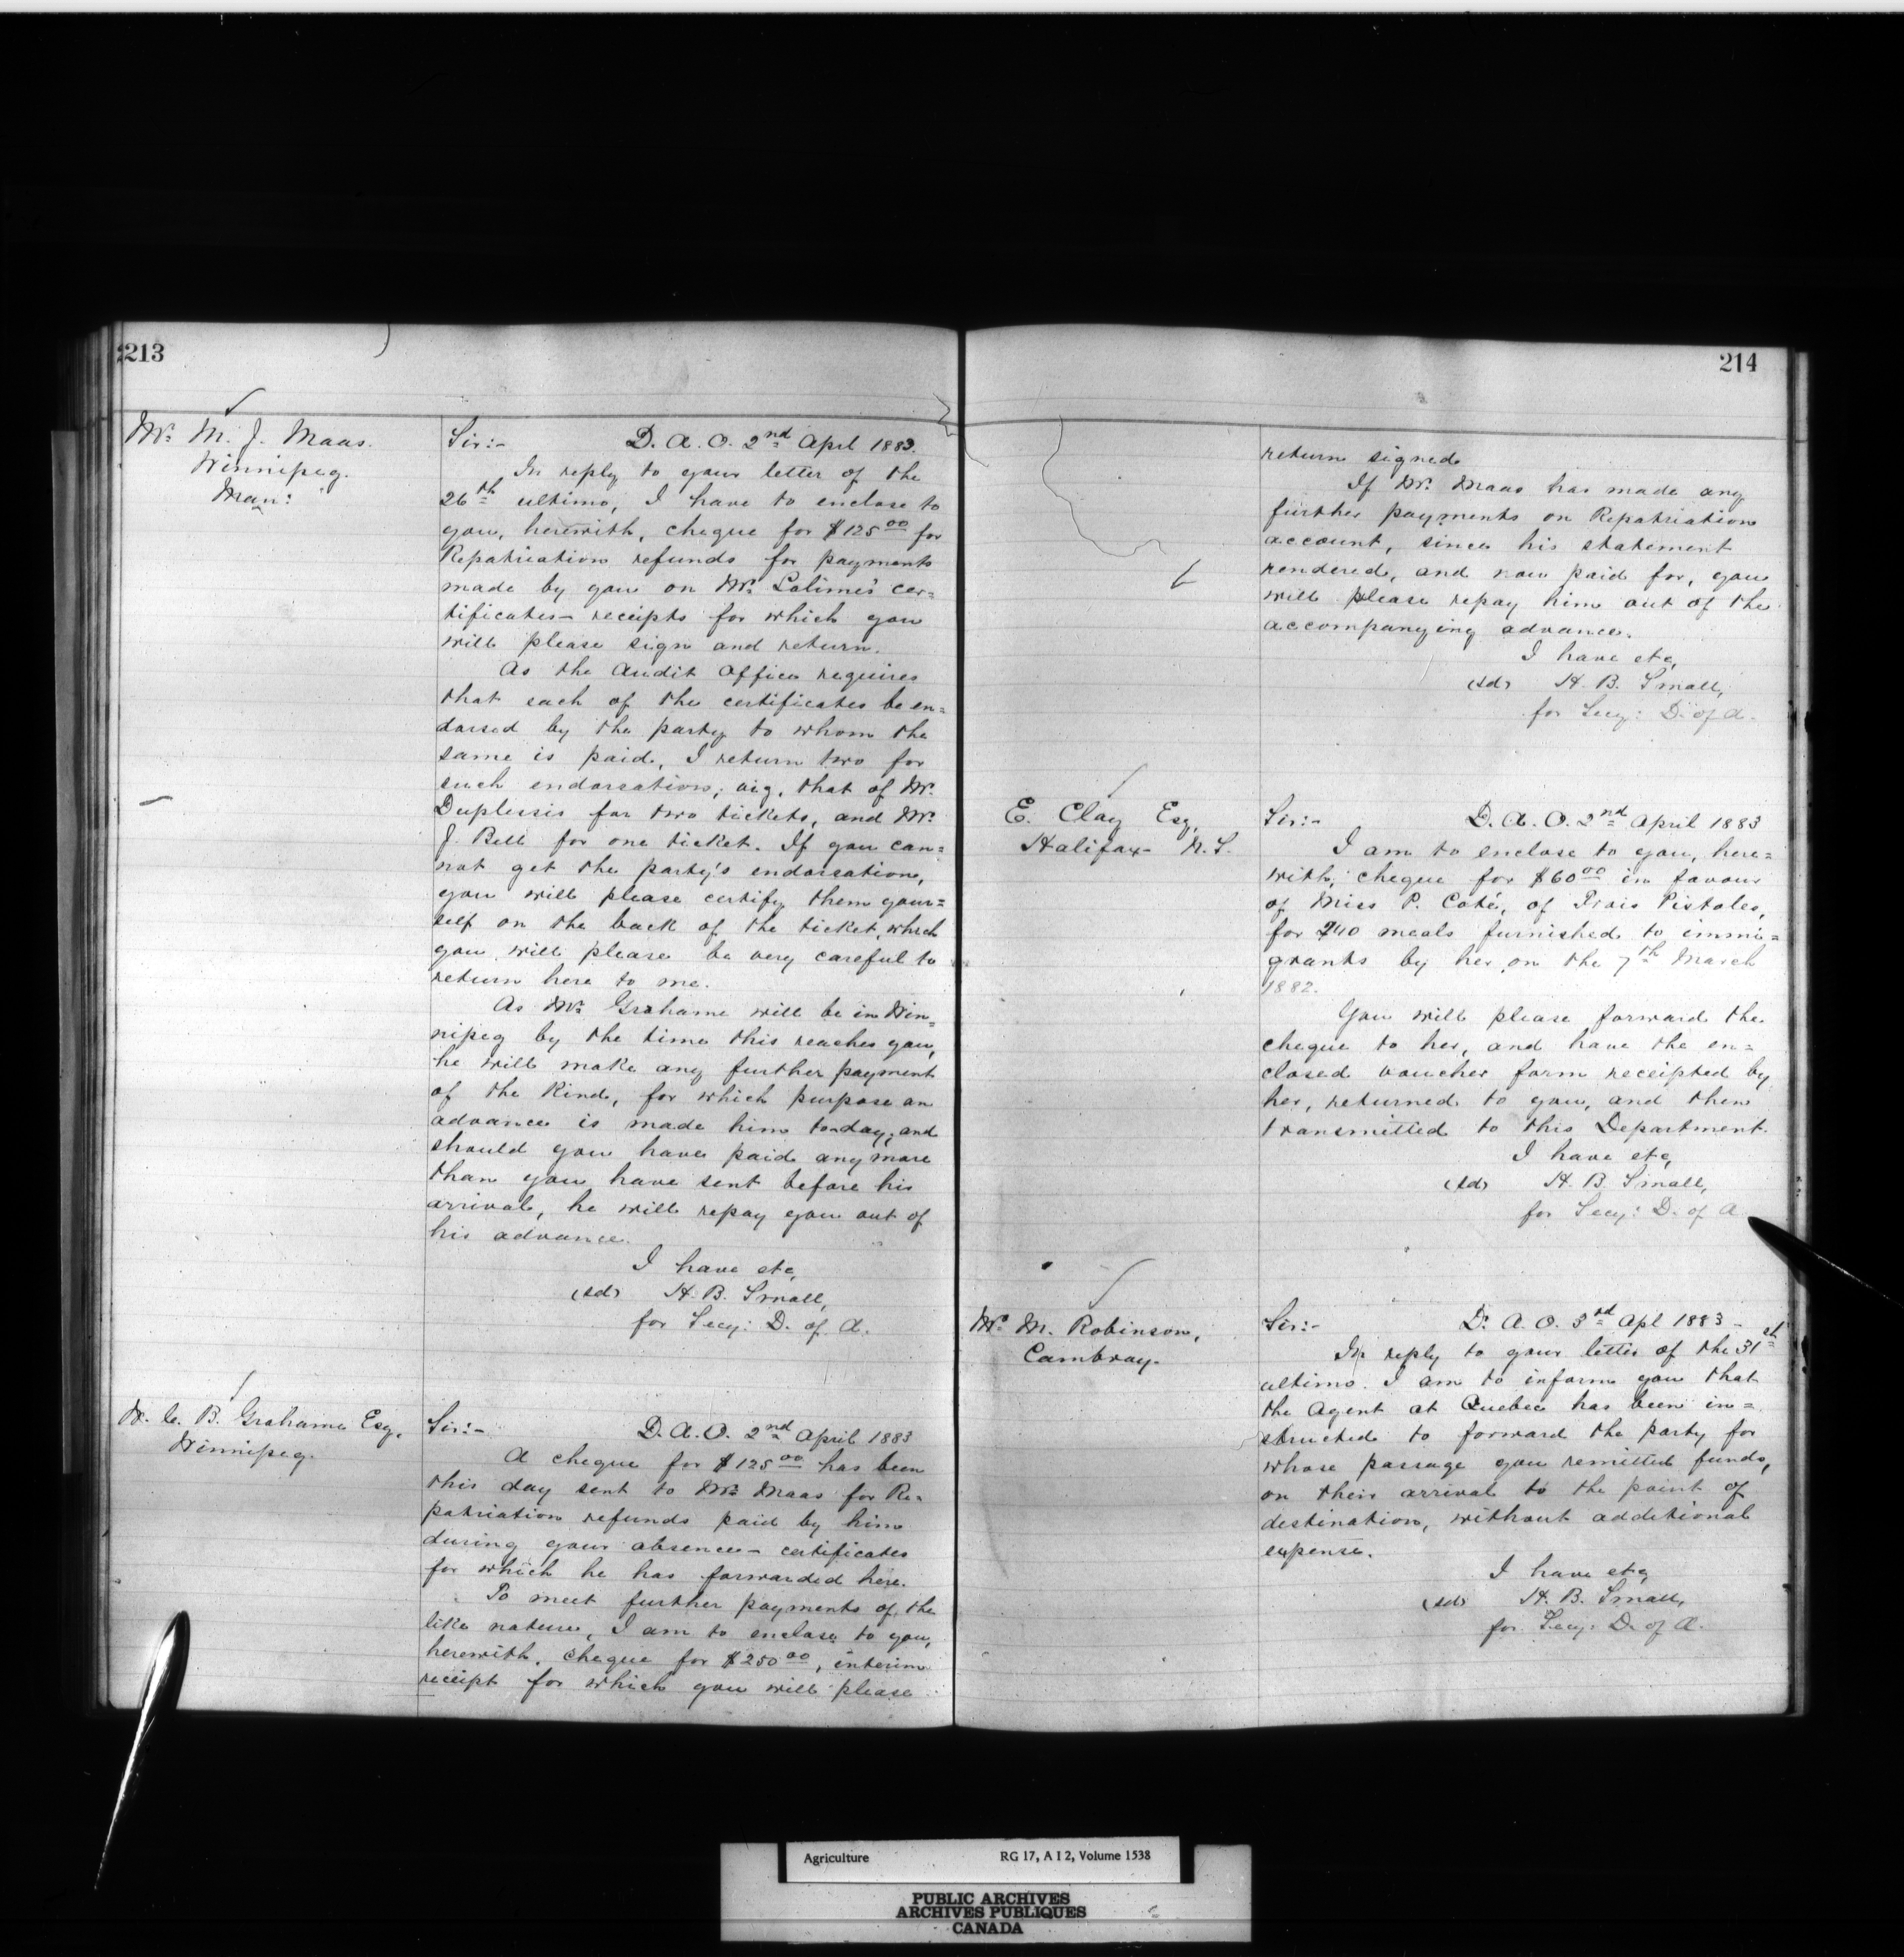 213
Mr. M. J. Maas.
Winnipeg.
Man:
Sir:- D. A. O. 2nd April 1883.
In reply to your letter of the
26th ultimo, I have to enclose to
you, herewith, cheque for $125 00 for
Repatriation refunds for payments
made by you on Mr. Lalime's cer=
tificates - receipts for which you
will please sign and return.
As the Audit Office requires
that each of the certificates be en=
dorsed by the party to whom the
same is paid, I return two for
such endorsation; viz, that of Mr.
Duplessis for two tickets, and Mr.
J. Bell for one ticket. If you can=
not get the party's endorsation,
you will please certify them your=
self on the back of the ticket, which
you will please be very careful to
return here to me.
As Mr. Grahame will be in Win=
nipeg by the time this reaches you,
he will make any further payment
of the kind, for which purpose an
advance is made him to-day; and
should you have paid any more
than you have sent before his
arrival, he will repay you out of
his advance.
I have etc,
(sd) H. B. Small,
for Secy: D. of A.
W. C. B. Grahame Esq,
Winnipeg.
Sir:- D. A. O. 2nd April 1883
A cheque for $125 00 has been
this day sent to Mr. Maas for Re=
patriation refunds paid by him
during your absence - certificates
for which he has forwarded here.
To meet further payments of the
like nature, I am to enclose to you,
herewith, cheque for $250 00, interim
receipt for which you will please
214
return signed.
If Mr. Maas has made any
further payments on Repatriation
account, since his statement
rendered, and now paid for, you
will please repay him out of the
accompanying advance.
I have etc,
(sd) H. B. Small,
for Secy: D. of A.
E. Clay Esq,
Halifax - N.S.
Sir:- D. A. O. 2nd April 1883
I am to enclose to you, here=
with, cheque for $60 00 in favour
of Miss P. Coté, of Trois Pistoles,
for 240 meals furnished to immi=
grants by her on the 7th March
1882.
You will please forward the
cheque to her, and have the en=
closed voucher form receipted by
her, returned to you, and then
transmitted to this Department.
I have etc,
(sd) H. B. Small,
for Secy: D. of A
Mr. M. Robinson,
Cambray.
Sir:- D. A. O. 3rd Apl 1883 -
In reply to your letter of the 31st
ultimo. I am to inform you that
the Agent at Quebec has been in=
structed to forward the party for
whose passage you remitted funds,
on their arrival to the point of
destination, without additional
expense.
I have etc,
(sd) H. B. Small,
for Secy: D. of A.
Agriculture RG 17, A I 2, Volume 1538
PUBLIC ARCHIVES
ARCHIVES PUBLIQUES
CANADA